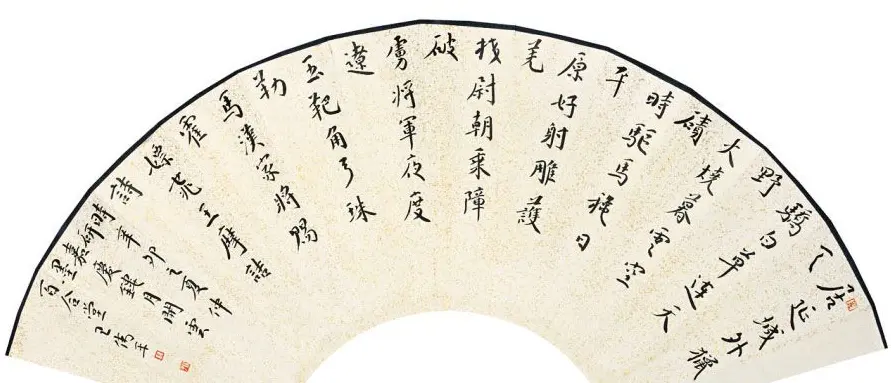 居延域外獵
天
驕白草連天
野
火燒暮雲空
磧
時驅馬秋日
平
原好射雕護
羌
校尉朝乘障
破
虜將軍夜度
遼
玉靶角弓珠
勒
馬漢家將賜
霍
嫖姚王摩詰
詩
時辛卯之夏仲
月開雲
百合堂